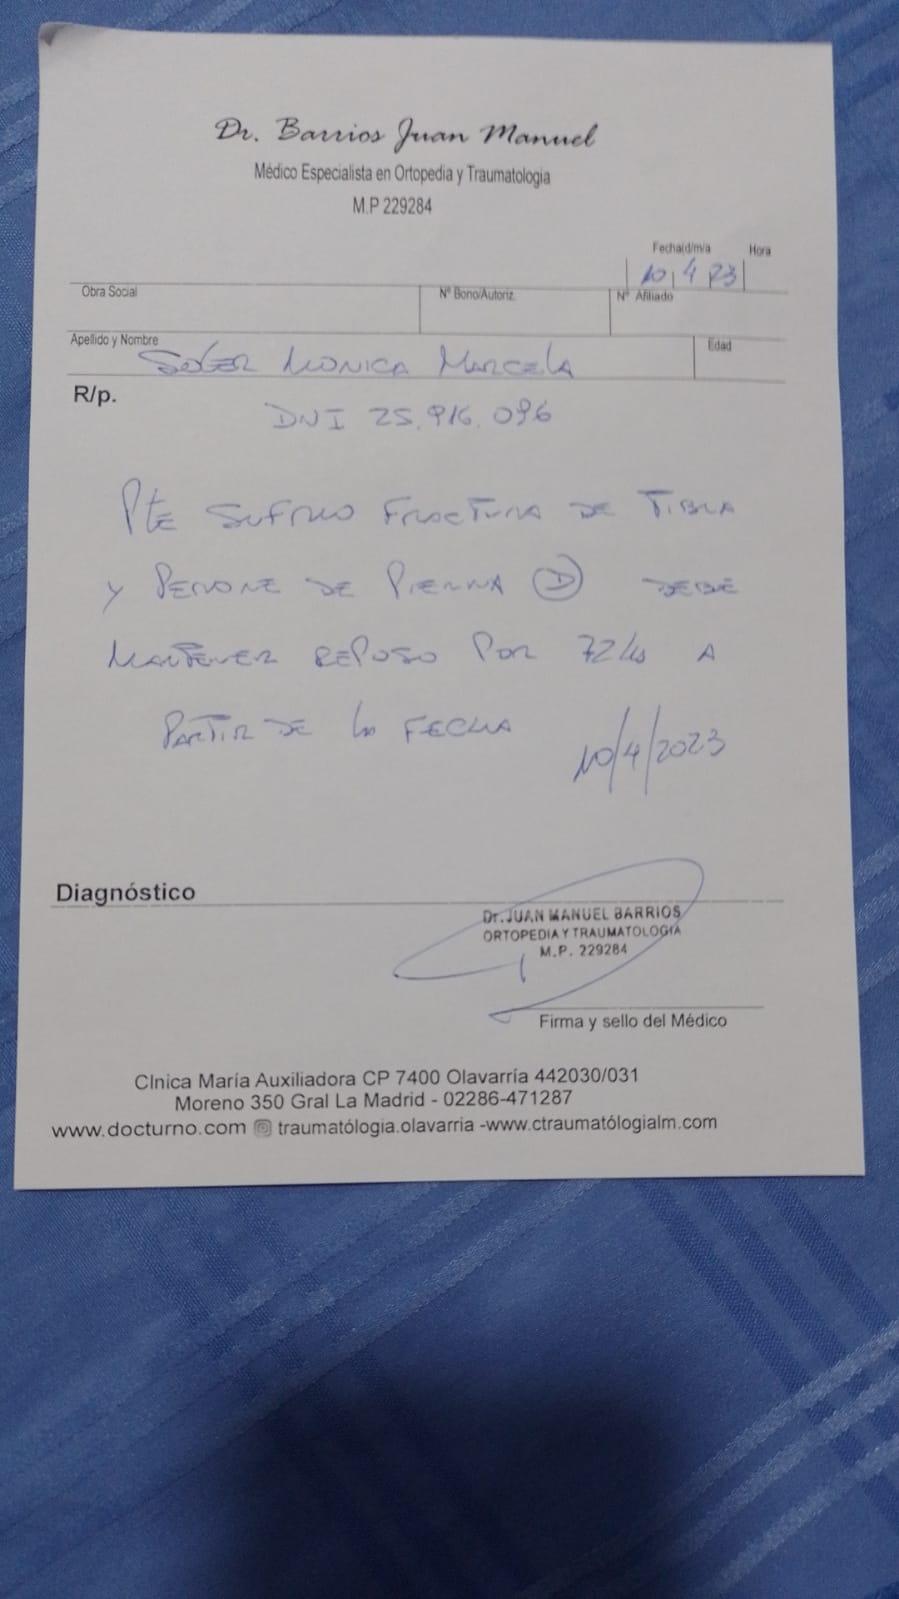 Dr. Barrios Juan Manuel
Médico Especialista en Ortopedia y Traumatologia
M.P 229284
Fecha(d/m/a Hora
10 4 23
Obra Social Nº Bono/Autoriz. Nº Afiliado
Apellido y Nombre Edad
Soler Monica Marcela
R/p.
DNI 25.916.096
Pte sufrio fractura de Tibia
y Perone de Pierna D debe
mantener reposo por 72hs a
partir de la fecha
10/4/2023
Diagnóstico
Dr. JUAN MANUEL BARRIOS
ORTOPEDIA Y TRAUMATOLOGIA
M.P. 229284
Firma y sello del Médico
Clnica María Auxiliadora CP 7400 Olavarría 442030/031
Moreno 350 Gral La Madrid - 02286-471287
www.docturno.com traumatólogia.olavarria -www.ctraumatólogialm.com